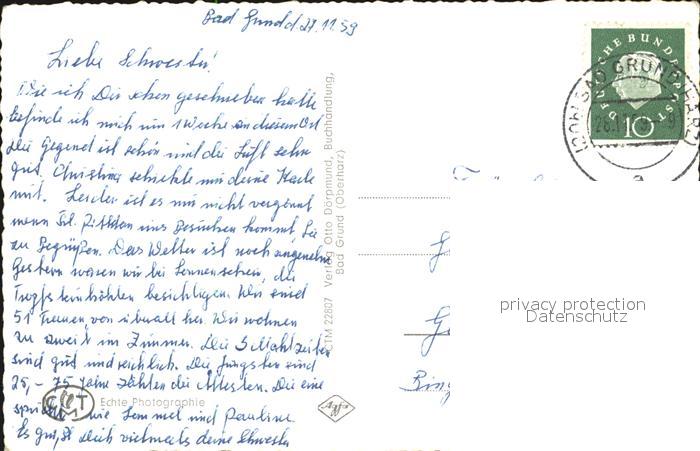 Bad Grund d 27.11.59
Liebe Schwester!
Wie ich Dir schon geschrieben hatte
befinde ich mich 1 Woche an diesem Ort
Die Gegend ist schön und die Luft sehr
gut. Christina schickte mir deine Karte
mit. Leider ist es mir nicht vergönnt
wenn Frl. uns Besuchen kommt, Sie
zu Begrüßen. Das Wetter ist noch angenehm
Gestern waren wir bei Sonnenschein, die
Tropfsteinhöhlen besichtigen. Wir sind
51 Frauen, von überall her. Wir wohnen
zu zweit im Zimmer. Die 5 Mahlzeiten
sind gut und reichlich. Die Jüngsten sind
25,- 75 Jahre zählen die Ältesten. Die eine
wie Semmel und Pauline
Es grüßt Dich vielmals deine Schwester
CTM 22807 Verlag Otto Dörpmund, Buchhandlung,
Bad Grund (Oberharz)
Echte Photographie
Agfa
DEUTSCHE BUNDESPOST
10
BAD GRUND (HARZ)
a
Ring
privacy protection
Datenschutz